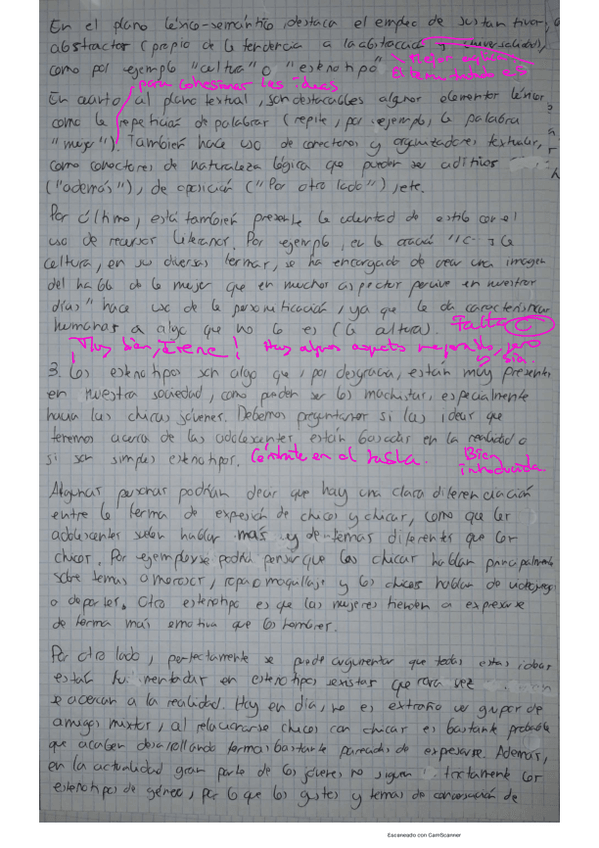 En el plano léxico-semántico, destaca el empleo de sustantivos
abstractos (propio de la tendencia a la abstracción y universalidad),
como por ejemplo "cultura" o "estereotipo" Mejor explicar
El tema tratado es
para cohesionar las ideas
En cuanto al plano textual, son destacables algunos elementos léxicos,
como la repetición de palabras (repite, por ejemplo, la palabra
"mujer"). También hace uso de conectores y organizadores textuales,
como conectores de naturaleza lógica que pueden ser aditivos
("además"), de oposición ("Por otro lado"), etc.
Por último, está también presente la voluntad de estilo con el
uso de recursos literarios. Por ejemplo, en la oración "(...) la
cultura, en sus diversas formas, se ha encargado de crear una imagen
del habla de la mujer que en muchos aspectos pervive en nuestros
días" hace uso de la personificación, ya que le da características
humanas a algo que no lo es (la cultura). Falta C
¡Muy bien, Irene! Hay algunos aspectos mejorables, pero
3. Los estereotipos son algo que, por desgracia, están muy presentes
en nuestra sociedad, como pueden ser los machistas, especialmente
hacia las chicas jóvenes. Debemos preguntarnos si las ideas que
tenemos acerca de las adolescentes están basadas en la realidad o
si son simples estereotipos. Céntrate en el habla. Bien
introducida.
Algunas personas podrían decir que hay una clara diferenciación
entre la forma de expresión de chicos y chicas, como que las
adolescentes suelen hablar más y de temas diferentes que los
chicos. Por ejemplo, se podría pensar que las chicas hablan principalmente
sobre temas amorosos, ropa o maquillaje y los chicos hablan de videojuegos
o deportes. Otro estereotipo es que las mujeres tienden a expresarse
de forma más emotiva que los hombres.
Por otro lado, perfectamente se puede argumentar que todas estas ideas
están fundamentadas en estereotipos sexistas que rara vez
se acercan a la realidad. Hoy en día, no es extraño ver grupos de
amigos mixtos, al relacionarse chicos con chicas es bastante probable
que acaben desarrollando formas bastante parecidas de expresarse. Además,
en la actualidad gran parte de los jóvenes no siguen los
estereotipos de género, por lo que los gustos y temas de conversación de
Escaneado con CamScanner